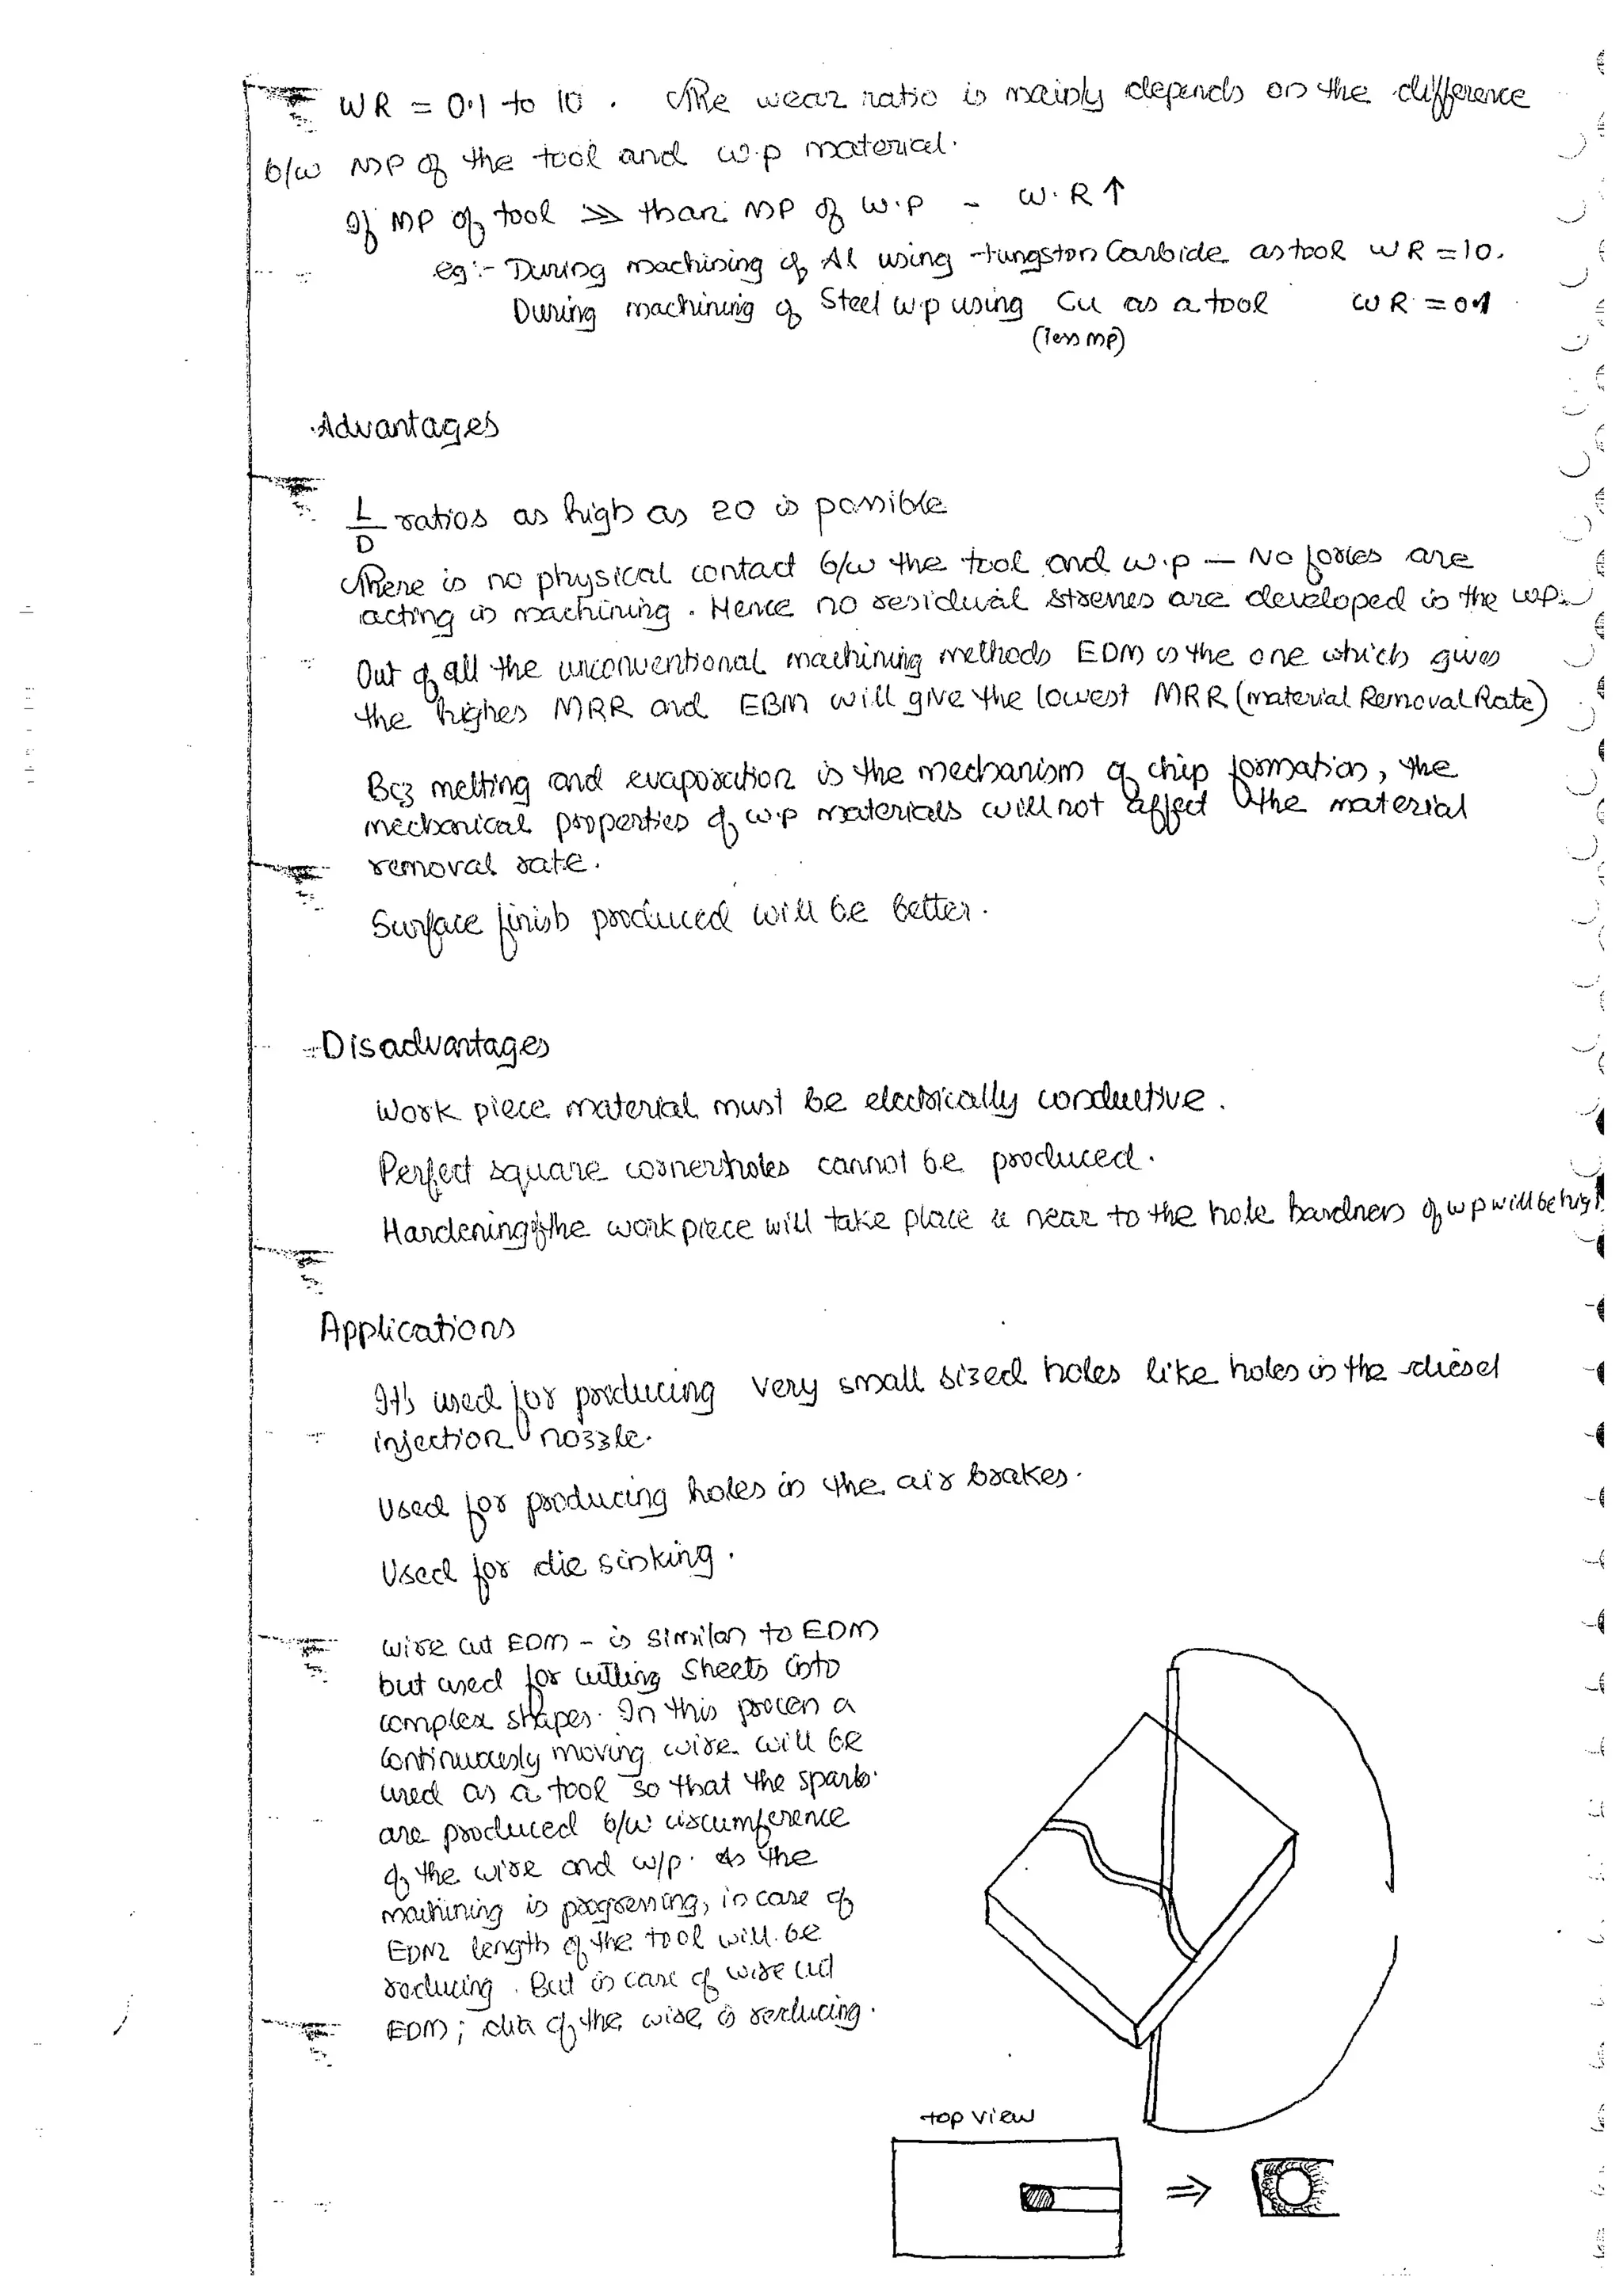 WR = 0.1 to 10 . The wear ratio is mainly depends on the difference
b/w MP of the tool and w.p material.
If MP of tool >> than MP of w.p - W.R ↑
eg:- During machining of Al using tungston Carbide as tool WR = 10.
During machining of Steel w.p using Cu as a tool WR = 0.1
(less MP)
Advantages
L/D ratios as high as 20 is possible
There is no physical contact b/w the tool and w.p — No forces are
acting in machining. Hence no residual stresses are developed in the wp.
Out of all the unconventional machining methods EDM is the one which gives
the highes MRR and EBM will give the lowest MRR (material Removal Rate)
Bcz melting and evaporation is the mechanism of chip formation, the
mechanical properties of w.p materials will not affect the material
removal rate.
Surface finish produced will be better.
Disadvantages
Work piece material must be electrically conductive.
Perfect square corner holes cannot be produced.
Hardening of the work piece will take place & near to the hole hardness of wp will be high
Applications
It's used for producing very small sized holes like holes in the diesel
injection nozzle.
Used for producing holes in the air brakes.
Used for die sinking.
Wire cut EDM - is similar to EDM
but used for cutting sheets into
complex shapes. In this process a
Continuously moving wire will be
used as a tool so that the sparks
are produced b/w circumference
of the wire and w/p. As the
machining is progressing, in case of
EDM length of the tool will be
reducing. But in case of wire cut
EDM; dia of the wire is reducing.
top view